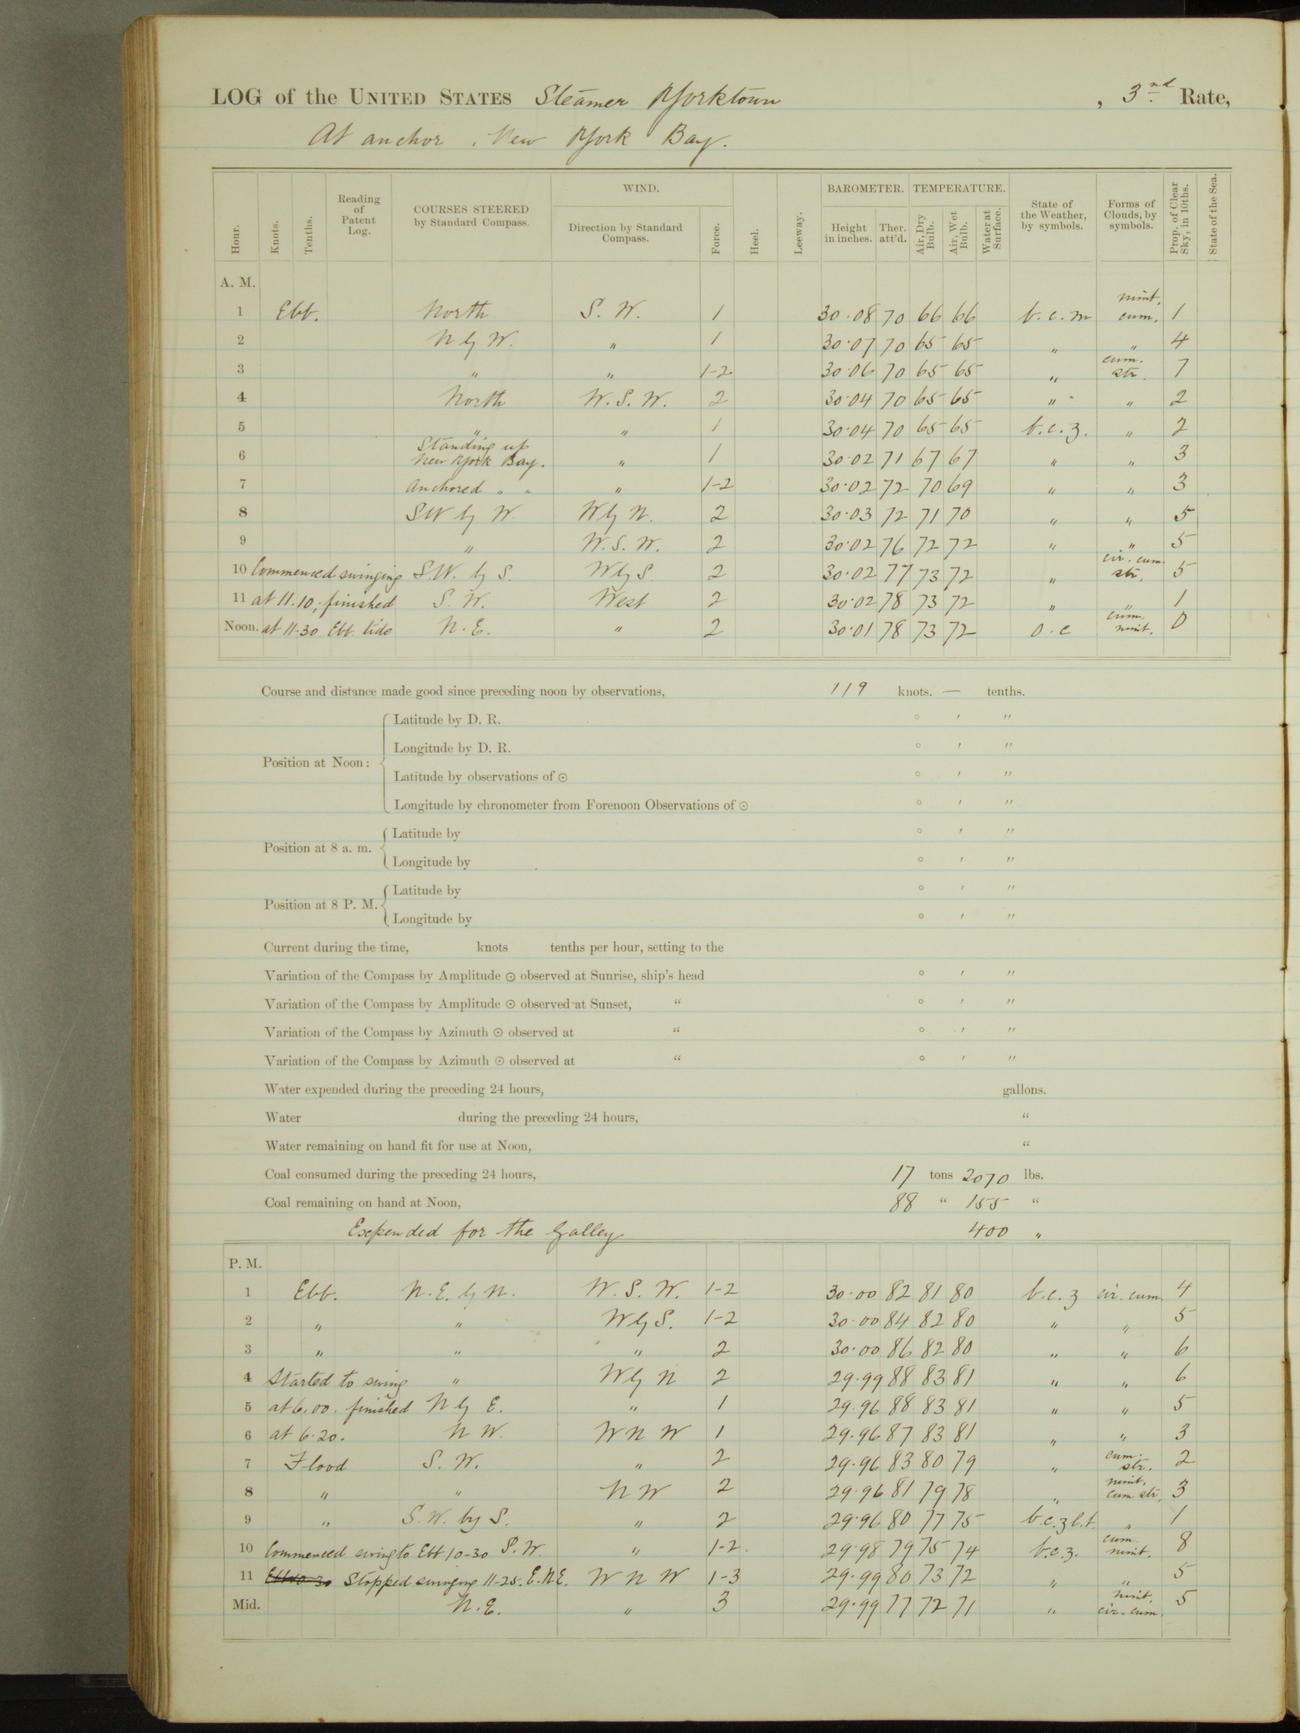 LOG of the UNITED STATES Steamer Yorktown , 3nd Rate,
At anchor, New York Bay.
Hour. Knots. Tenths. Reading of Patent Log. COURSES STEERED by Standard Compass. WIND. Direction by Standard Compass. Force. Heel. Leeway. BAROMETER. Height in inches. Ther. att'd. TEMPERATURE. Air, Dry Bulb. Air, Wet Bulb. Water at Surface. State of the Weather, by symbols. Forms of Clouds, by symbols. Prop. of Clear Sky, in 10ths. State of the Sea.
A. M.
1 Ebb. North S. W. 1 30.08 70 66 66 b.c.m nimb. cum. 1
2 N by W. " 1 30.07 70 65 65 " " 4
3 " " 1-2 30.06 70 65 65 " cum. str. 7
4 North W. S. W. 2 30.04 70 65 65 " " 2
5 " " 1 30.04 70 65 65 b.c.z. " 2
6 Standing up New York Bay. " 1 30.02 71 67 67 " " 3
7 Anchored " " " 1-2 30.02 72 70 69 " " 3
8 SW by W W by N. 2 30.03 72 71 70 " " 5
9 " W. S. W. 2 30.02 76 72 72 " " 5
10 Commenced swinging S.W. by S. W by S 2 30.02 77 73 72 " cir. cum. str. 5
11 at 11.10; finished S. W. West 2 30.02 78 73 72 " " 1
Noon. at 11-30 Ebb tide N. E. " 2 30.01 78 73 72 o.c cum. nimb. 0
Course and distance made good since preceding noon by observations, 119 knots. — tenths.
Position at Noon:
Latitude by D. R. ° ′ ″
Longitude by D. R. ° ′ ″
Latitude by observations of ☉ ° ′ ″
Longitude by chronometer from Forenoon Observations of ☉ ° ′ ″
Position at 8 a. m.
Latitude by ° ′ ″
Longitude by ° ′ ″
Position at 8 P. M.
Latitude by ° ′ ″
Longitude by ° ′ ″
Current during the time, knots tenths per hour, setting to the
Variation of the Compass by Amplitude ☉ observed at Sunrise, ship's head ° ′ ″
Variation of the Compass by Amplitude ☉ observed at Sunset, " ° ′ ″
Variation of the Compass by Azimuth ☉ observed at " ° ′ ″
Variation of the Compass by Azimuth ☉ observed at " ° ′ ″
Water expended during the preceding 24 hours, gallons.
Water during the preceding 24 hours, "
Water remaining on hand fit for use at Noon, "
Coal consumed during the preceding 24 hours, 17 tons 2070 lbs.
Coal remaining on hand at Noon, 88 " 155 "
Expended for the Galley 400 "
P. M.
1 Ebb. N. E. by N. W. S. W. 1-2 30.00 82 81 80 b.c.z cir. cum. 4
2 " " W by S. 1-2 30.00 84 82 80 " " 5
3 " " " 2 30.00 86 82 80 " " 6
4 Started to swing " W by N 2 29.99 88 83 81 " " 6
5 at 6.00. finished N by E. " 1 29.96 88 83 81 " " 5
6 at 6.20. N W. W N W 1 29.96 87 83 81 " " 3
7 Flood S. W. " 2 29.96 83 80 79 " cum. str. 2
8 " " N W 2 29.96 81 79 78 " nimb. cum str. 3
9 " S. W. by S. " 2 29.96 80 77 75 b.c.z.l.t. " 1
10 Commenced swing to Ebb 10-30 S. W. " 1-2. 29.98 79 75 74 b.c.z. cum. nimb. 8
11 Stopped swinging 11-25. E.N.E. W N W 1-3 29.99 80 73 72 " " 5
Mid. N. E. " 3 29.99 77 72 71 " nimb. cir-cum. 5